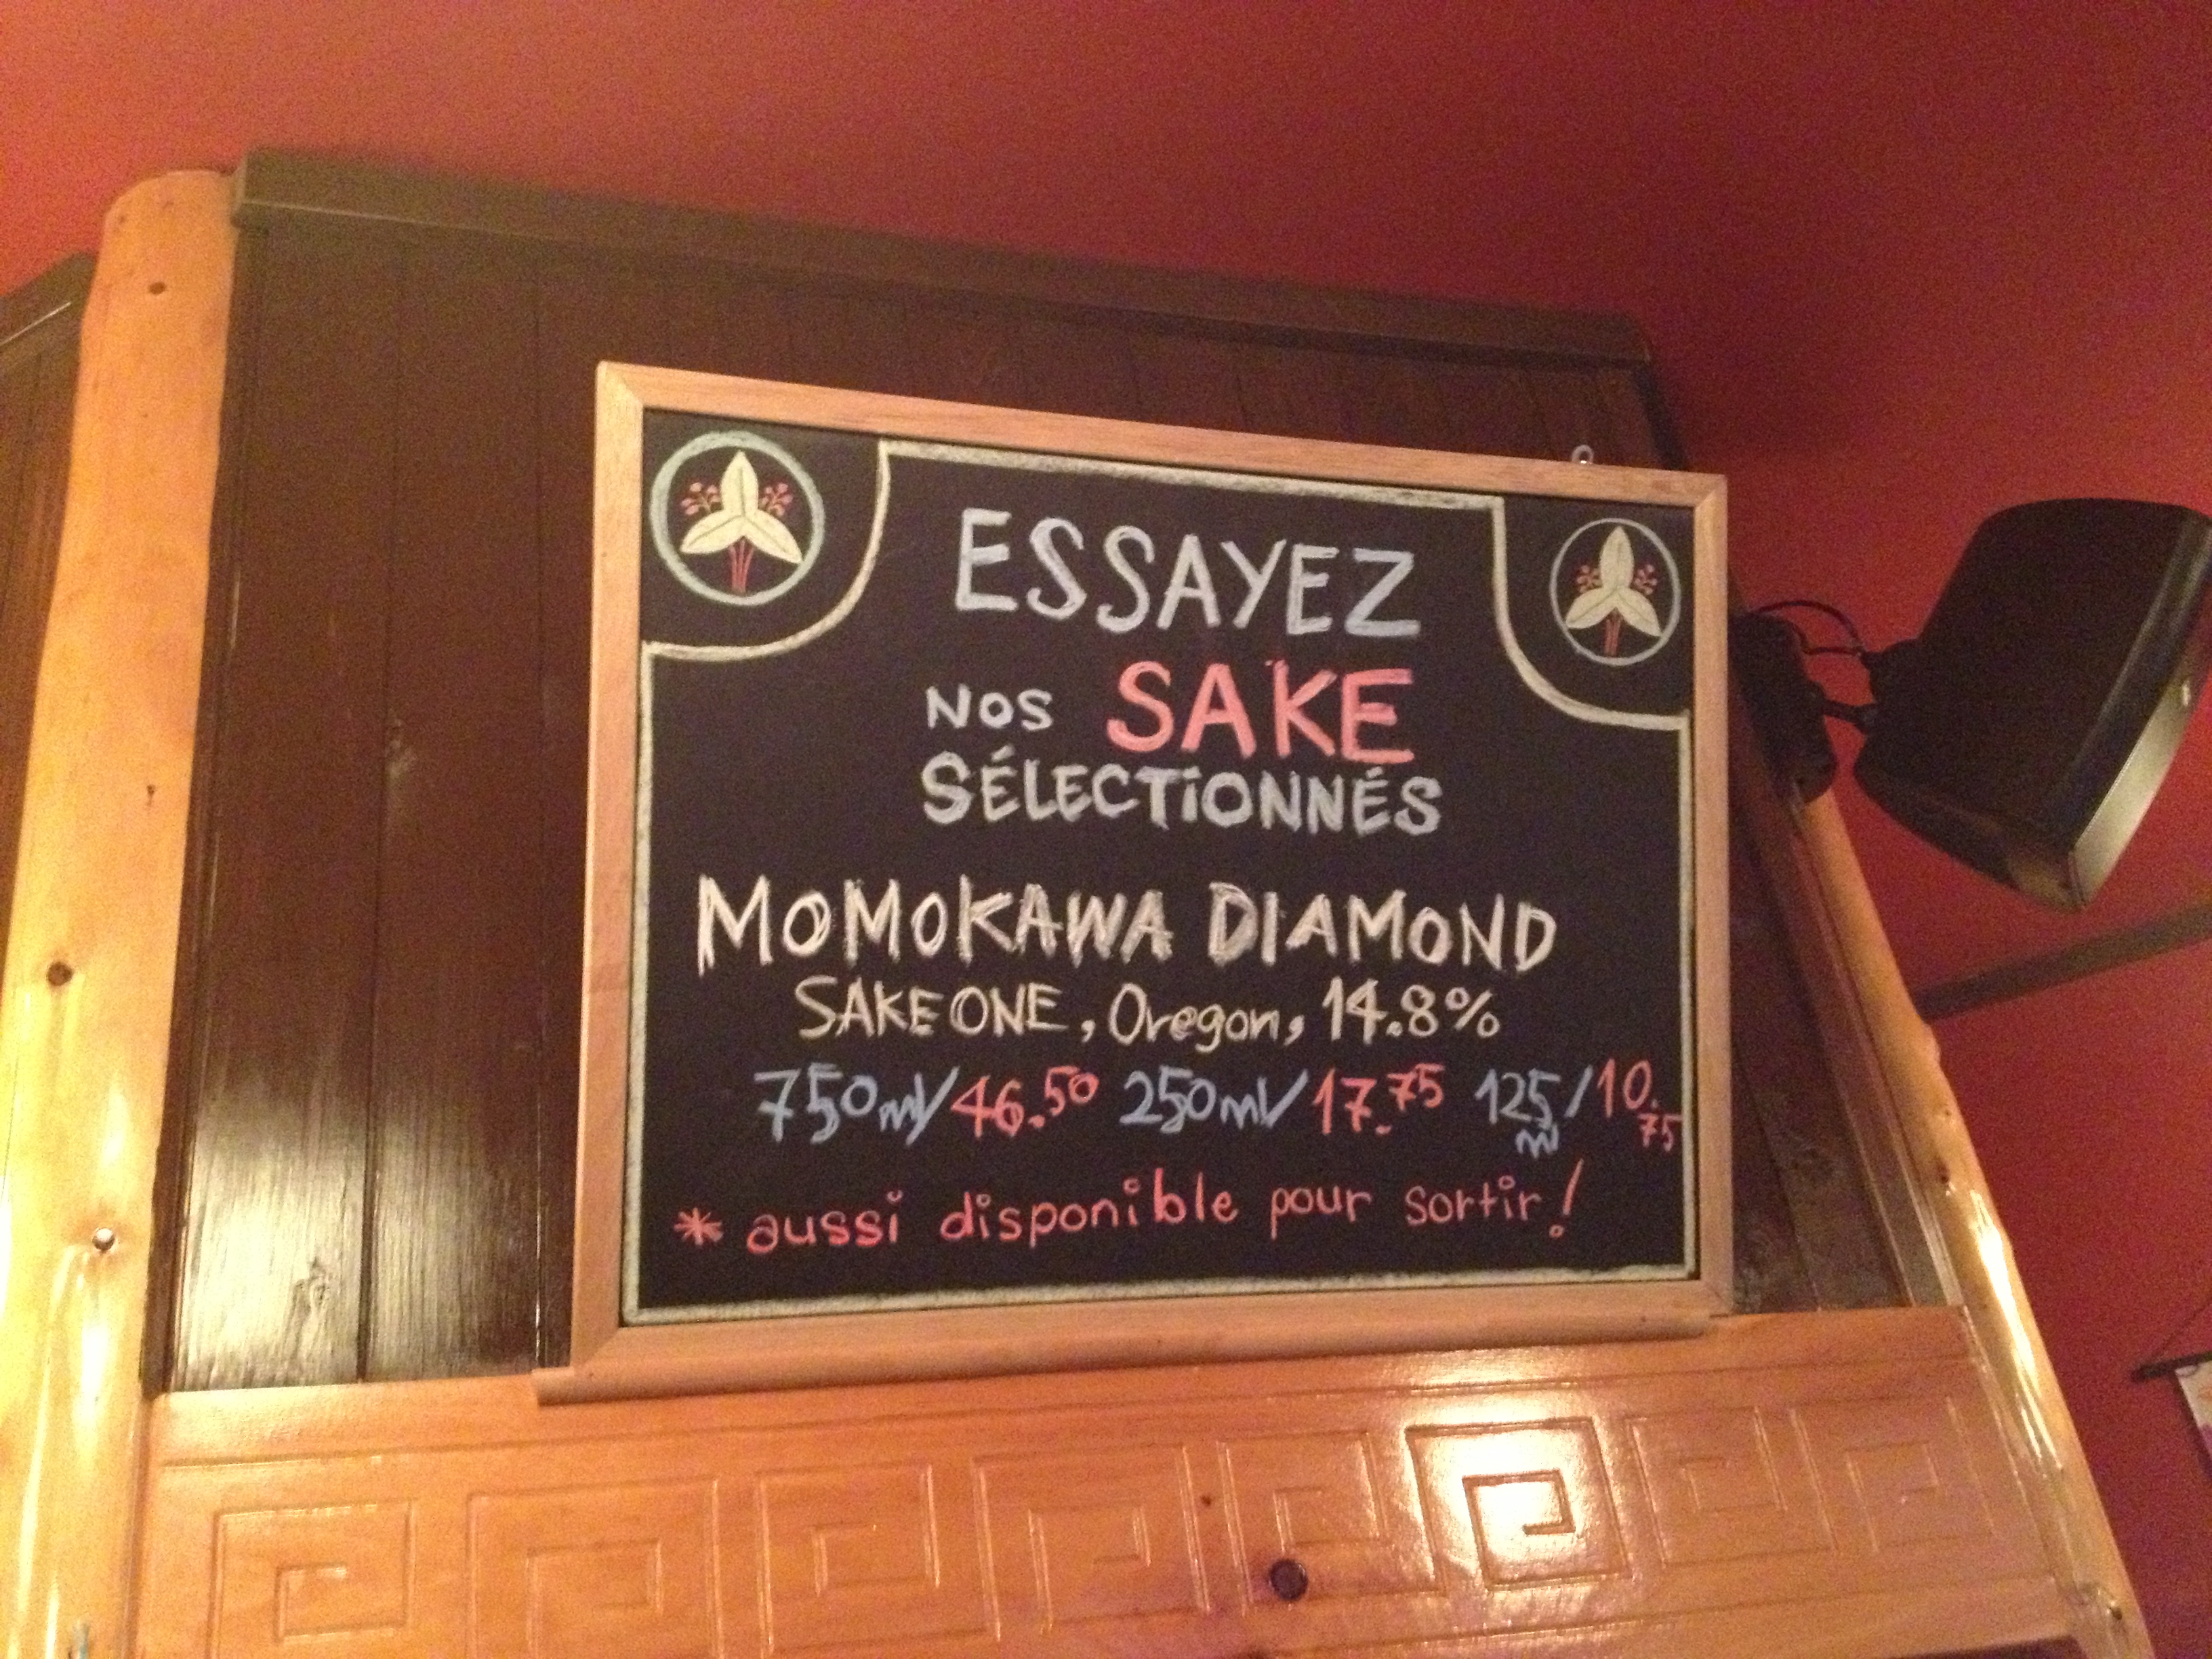 ESSAYEZ
NOS SAKE
SÉLECTIONNÉS
MOMOKAWA DIAMOND
SAKEONE, Oregon, 14.8%
750ml/46.50 250ml/17.75 125ml/10.75
* aussi disponible pour sortir!